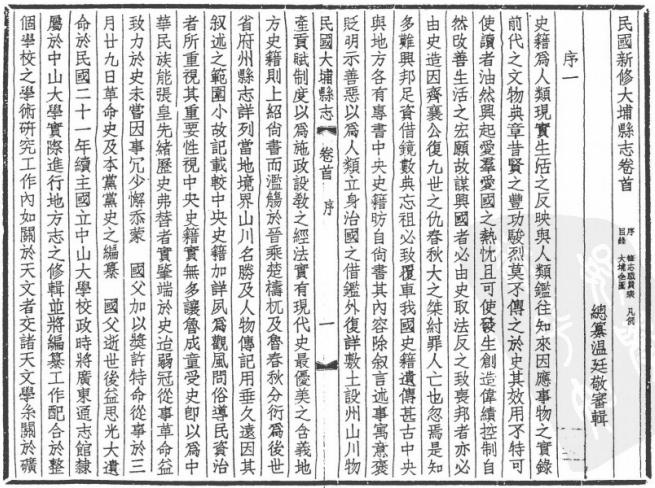 民國新修大埔縣志卷首
序 修志職員表 凡例
目錄 大埔全圖
總纂溫廷敬審輯
序一
史籍為人類現實生活之反映與人類鑑往知來因應事物之實錄
前代之文物典章昔賢之豐功駿烈莫不傳之於史其效用不特可
使讀者油然興起愛羣愛國之熱忱且可使發生創造偉績控制自
然改善生活之宏願故謀興國者必由史取法反之致喪邦者亦必
由史造因齊襄公復九世之仇春秋大之桀紂罪人亡也忽焉是知
多難興邦足資借鏡數典忘祖必致覆車我國史籍遺傳甚古中央
與地方各有專書中央史籍昉自尙書其內容除叙言述事寓意褒
貶明示善惡以為人類立身治國之借鑑外復詳敷土設州山川物
民國大埔縣志 卷首 序 一
產貢賦制度以為施政設敎之經法實有現代史最優美之含義地
方史籍則上紹尙書而濫觴於晉乘楚檮杌及魯春秋分衍為後世
省府州縣志詳列當地境界山川名勝及人物傳記用垂久遠因其
叙述之範圍小故記載較中央史籍加詳夙為觀風問俗導民資治
者所重視其重要性視中央史籍實無多讓魯成童受史卽以為中
華民族能張皇先緒歷史弗替者實肇端於史迨弱冠從事革命益
致力於史未嘗因事冗少懈忝蒙 國父加以奬許特命從事於三
月廿九日革命史及本黨黨史之編纂 國父逝世後益思光大遺
命於民國二十一年續主國立中山大學校政時將廣東通志館隸
屬於中山大學實際進行地方志之修輯並將編纂工作配合於整
個學校之學術研究工作內如關於天文者交諸天文學系關於礦